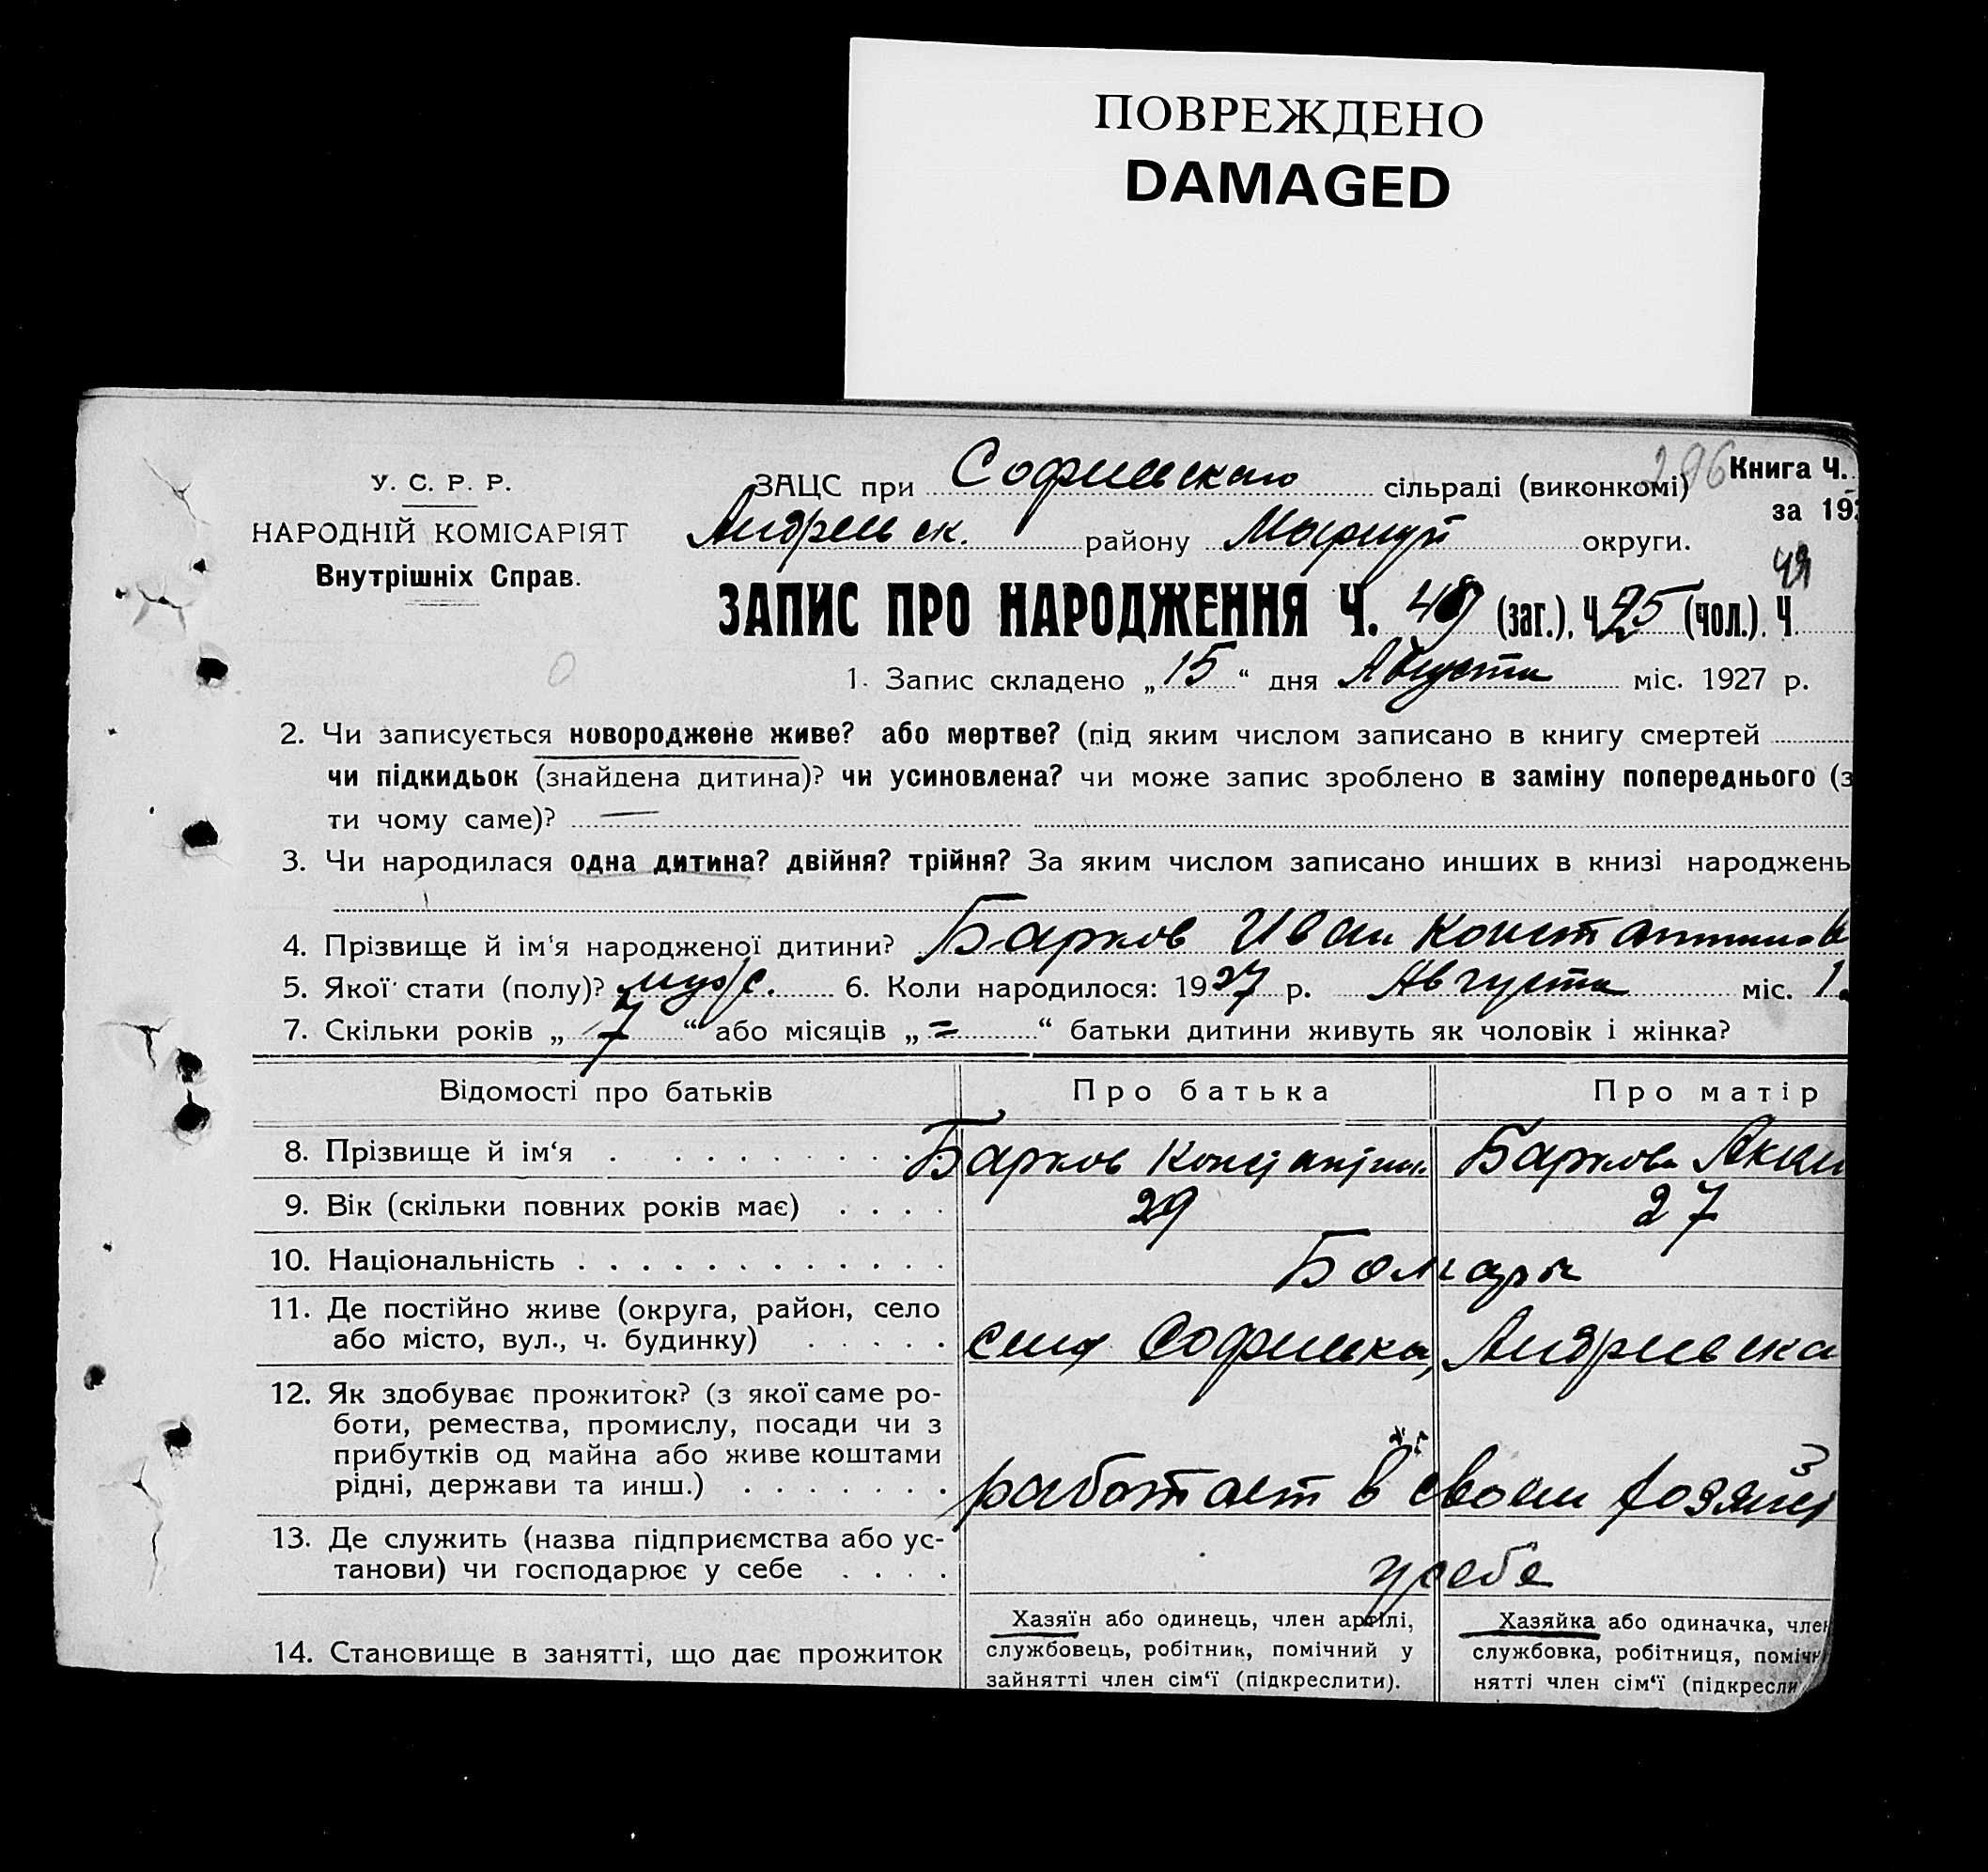 ПОВРЕЖДЕНО
DAMAGED
У. С. Р. Р.
НАРОДНІЙ КОМІСАРІЯТ
Внутрішніх Справ.
296 Книга Ч.
за 192
ЗАЦС при Софиевского сільраді (виконкомі)
Андреевск. району Мариуп округи.
ЗАПИС ПРО НАРОДЖЕННЯ Ч. 49 (заг.), Ч. 25 (чол.). Ч.
1. Запис складено „15“ дня Августа міс. 1927 р.
2. Чи записується новороджене живе? або мертве? (під яким числом записано в книгу смертей
чи підкидьок (знайдена дитина)? чи усиновлена? чи може запис зроблено в заміну попереднього (з
ти чому саме)? —
3. Чи народилася одна дитина? двійня? трійня? За яким числом записано инших в книзі народжень
4. Прізвище й ім'я народженої дитини? Барков Иван Константинов
5. Якої стати (полу)? муж. 6. Коли народилося: 1927 р. Августа міс. 1
7. Скільки років „7“ або місяців „=“ батьки дитини живуть як чоловік і жінка?
Відомості про батьків Про батька Про матір
8. Прізвище й ім'я Барков Константин. Баркова Акили
9. Вік (скільки повних років має) 29 27
10. Національність Болгары
11. Де постійно живе (округа, район, село
або місто, вул., ч. будинку) село Софиевка, Андреевска
12. Як здобуває прожиток? (з якої саме ро-
боти, ремества, промислу, посади чи з
прибутків од майна або живе коштами
рідні, держави та инш.) работает в своем хозяйс
13. Де служить (назва підприємства або ус-
танови) чи господарює у себе у себе
14. Становище в занятті, що дає прожиток
Хазяїн або одинець, член артілі,
службовець, робітник, помічний у
зайнятті член сім'ї (підкреслити).
Хазяйка або одиначка, член
службовка, робітниця, помічн
нятті член сім'ї (підкресли